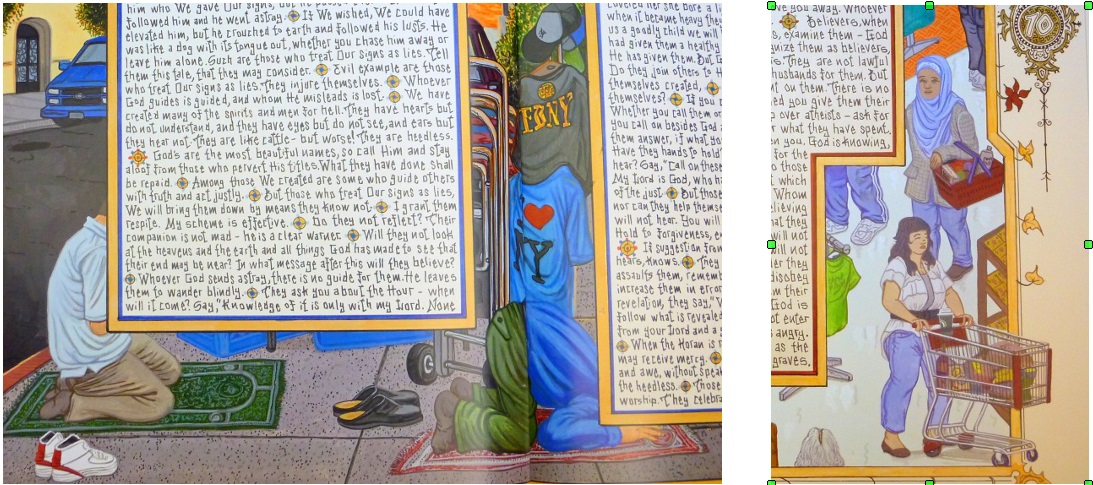 him who We gave Our signs, but he
followed him and he went astray. If We wished, We could have
elevated him, but he crouched to earth and followed his lusts. He
was like a dog with its tongue out, whether you chase him away or
leave him alone. Such are those who treat Our signs as lies. Tell
them this tale, that they may consider. Evil example are those
who treat Our signs as lies. They injure themselves. Whoever
God guides is guided, and whom He misleads is lost. We have
created many of the spirits and men for hell. They have hearts but
do not understand, and they have eyes but do not see, and ears but
they hear not. They are like cattle - but worse! They are heedless.
God's are the most beautiful names, so call Him and stay
aloof from those who pervert His titles. What they have done shall
be repaid. Among those We created are some who guide others
with truth and act justly. But those who treat Our signs as lies,
We will bring them down by means they know not. I grant them
respite. My scheme is effective. Do they not reflect? Their
companion is not mad - he is a clear warner. Will they not look
at the heavens and the earth and all things God has made to see that
their end may be near? In what message after this will they believe?
Whoever God sends astray, there is no guide for them. He leaves
them to wander blindly. They ask you about the Hour - when
will it come? Say, "Knowledge of it is only with my Lord. None
FDNY
NY
when it became heavy the
us a goodly child we will
had given them a healthy
He has given them. But G
Do they join others to H
themselves created,
themselves? If you c
Whether you call them or
you call on besides God a
them answer, if what yo
Have they hands to hold
hear? Say, "Call on these
My Lord is God, who ha
of the just. But those
nor can they help themse
will not hear. You will
Hold to forgiveness, en
If suggestion from
hears, knows. They
assaults them, rememb
increase them in error
revelation, they say, "W
follow what is revealed
from your Lord and a g
When the Koran is r
may receive mercy.
and awe, without speak
the heedless. Those
worship. They celebra
you away. Whoever
Believers, when
s, examine them - God
gnize them as believers,
is. They are not lawful
husbands for them. But
nt on them. There is no
ed you give them their
p over atheists - ask for
r what they have spent,
n you. God is knowing,
for the
t which
Whom
lieving
at they
will not
ill not
er they
disobey
m their
God is
ot enter
s angry.
as the
graves.